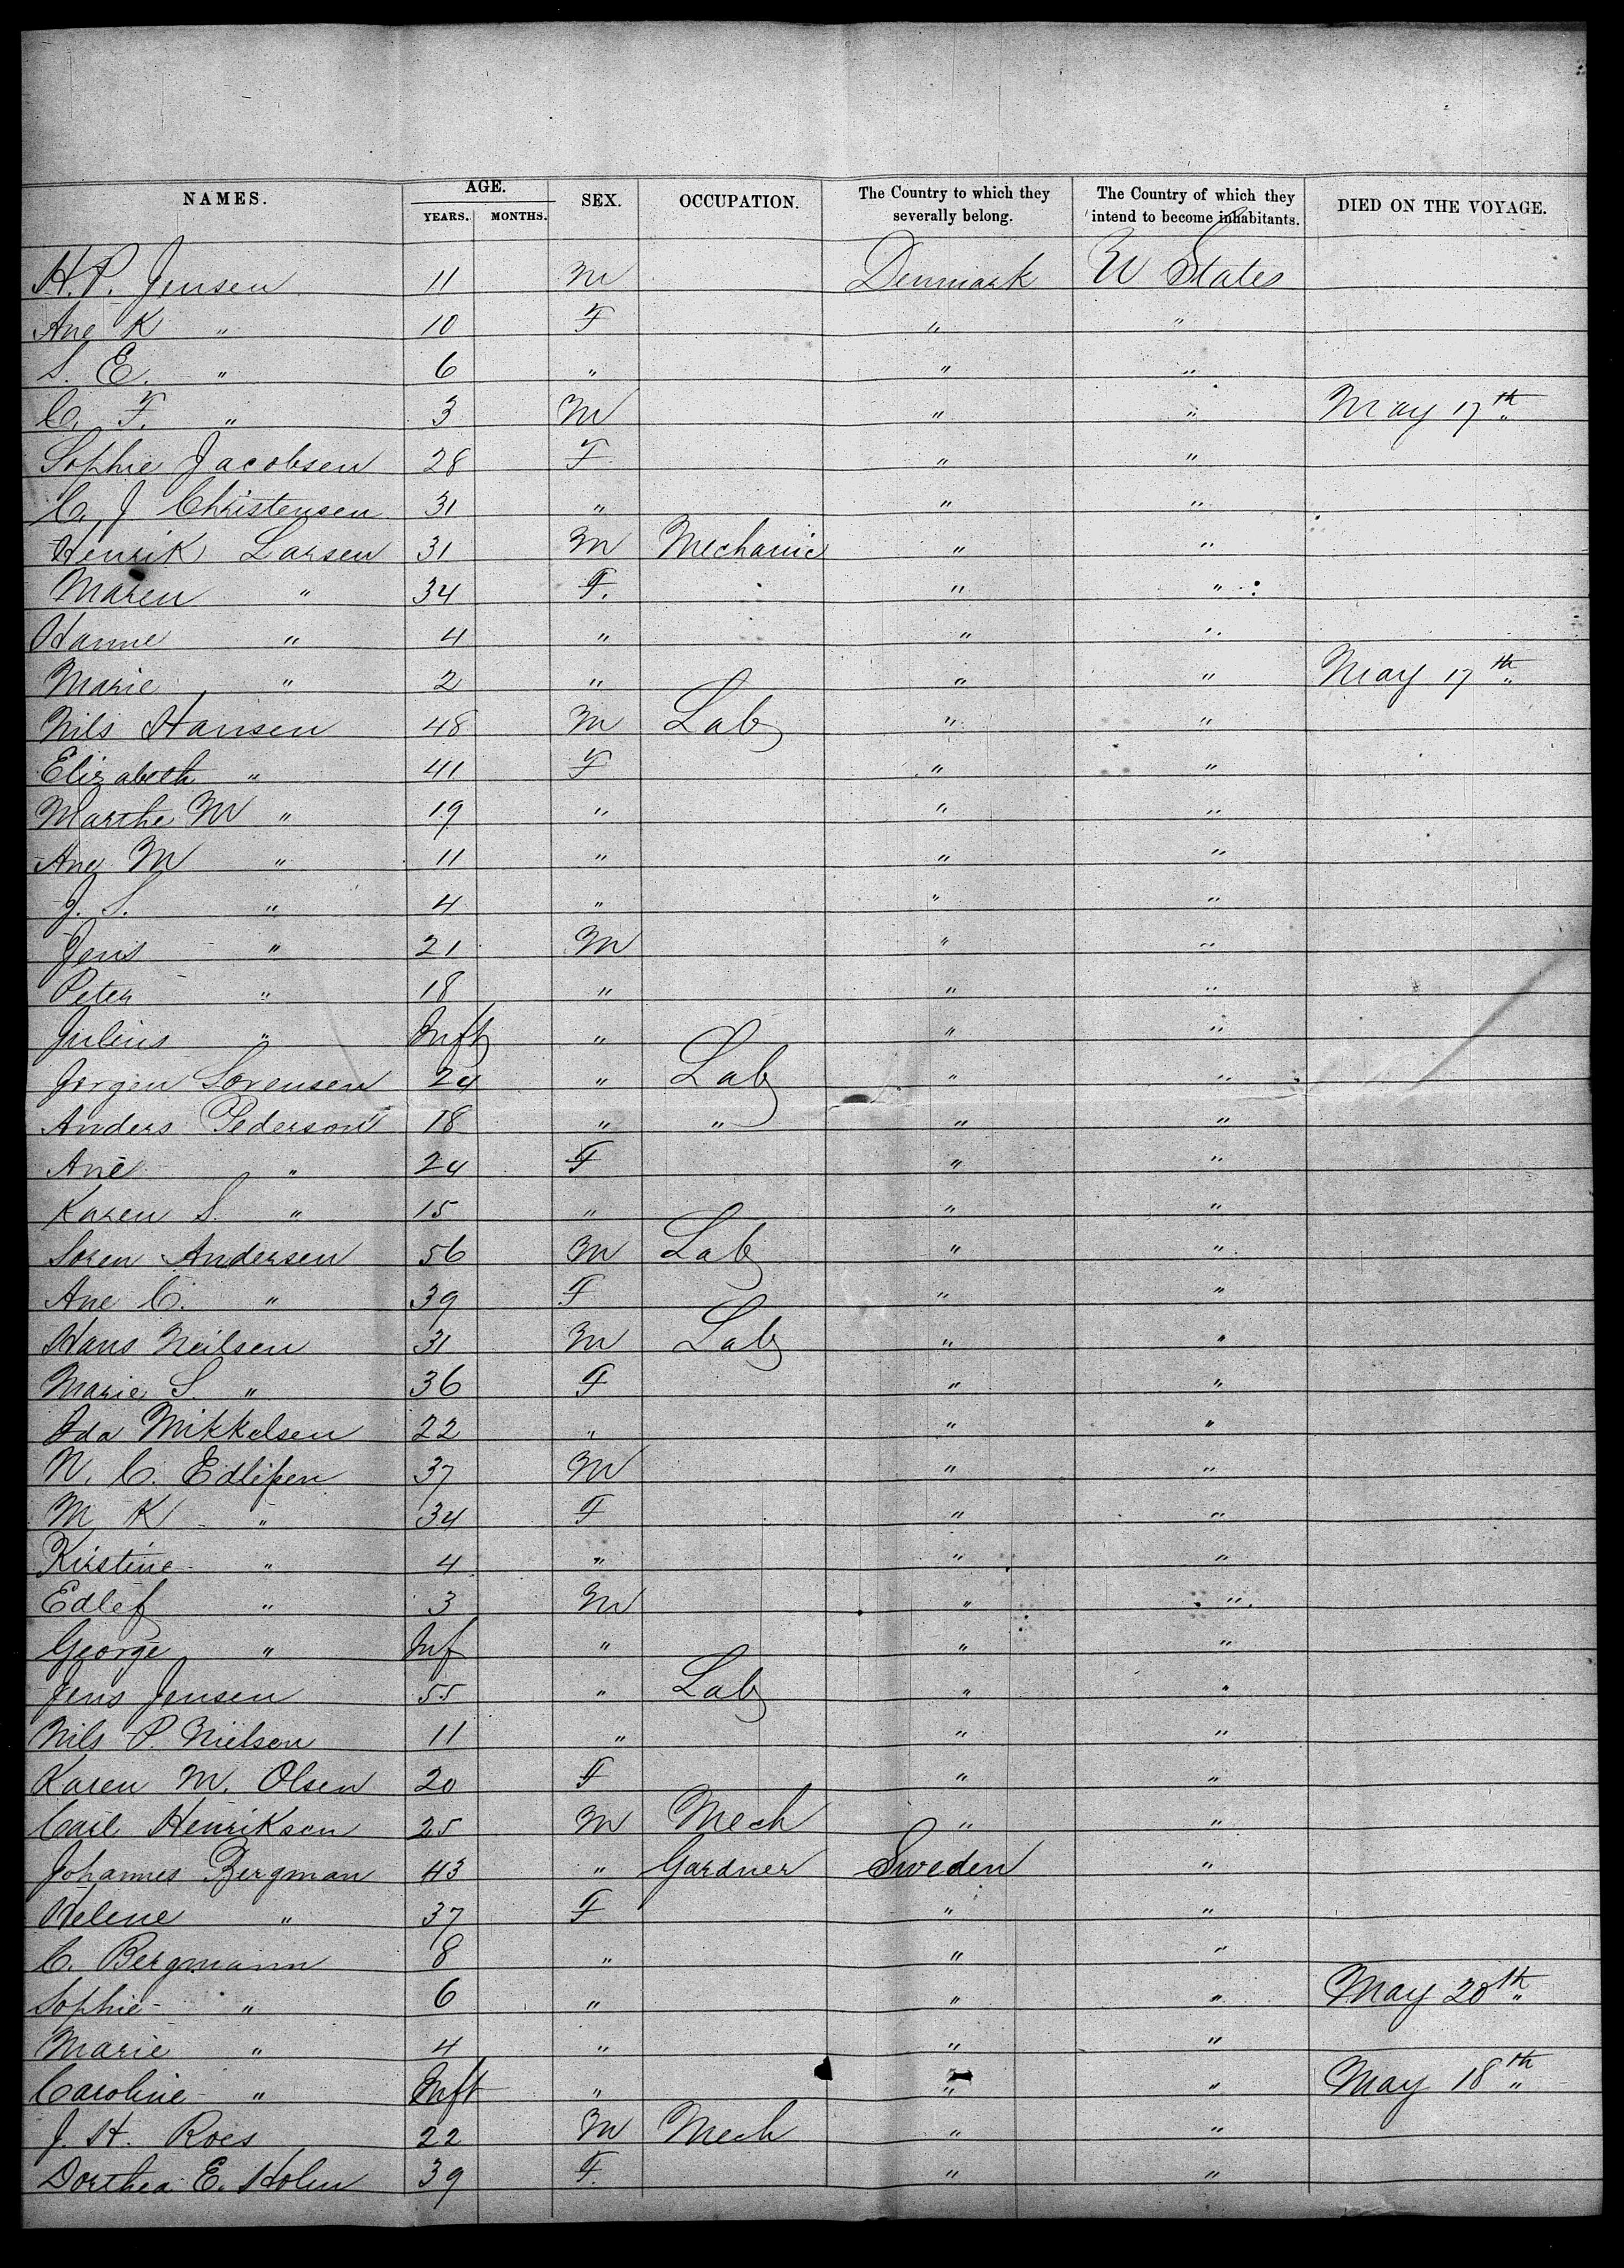 NAMES. AGE. SEX. OCCUPATION. The Country to which they severally belong. The Country of which they intend to become inhabitants. DIED ON THE VOYAGE.
YEARS. MONTHS.
H. P. Jensen 11 M Denmark U States
Ane K " 10 F " "
S. E. " 6 " " "
C. F. " 3 M " " May 17th
Sophie Jacobsen 28 F " "
C. J Christensen 31 " " "
Henrik Larsen 31 M Mechanic " "
Maren " 34 F. " "
Hanne " 4 " " "
Marie " 2 " " " May 17th
Nils Hansen 48 M Lab " "
Elizabeth " 41 F " "
Marthe M " 19 " " "
Ane M " 11 " " "
J. S. " 4 " " "
Jens " 21 M " "
Peter " 18 " " "
Julius " Inft " " "
Jorgen Sorensen 24 " Lab " "
Anders Pederson 18 " " " "
Ane " 24 F " "
Karen S. " 15 " " "
Soren Andersen 56 M Lab " "
Ane C. " 39 F " "
Hans Neilsen 31 M Lab " "
Marie S. " 36 F " "
Ida Mikkelsen 22 " " "
N. C. Edlifsen 37 M " "
M K " 34 F " "
Kirstine " 4 " " "
Edlef " 3 M " "
George " Inf " " "
Jens Jensen 55 " Lab " "
Nils P. Nielson 11 " " "
Karen M. Olsen 20 F " "
Carl Henriksen 25 M Mech " "
Johannes Bergman 43 " Gardner Sweden "
Helene " 37 F " "
C. Bergmann 8 " " "
Sophie " 6 " " " May 20th
Marie " 4 " " "
Caroline " Inft " " " May 18th
J. H. Roes 22 M Mech " "
Dorthea E. Holm 39 F. " "